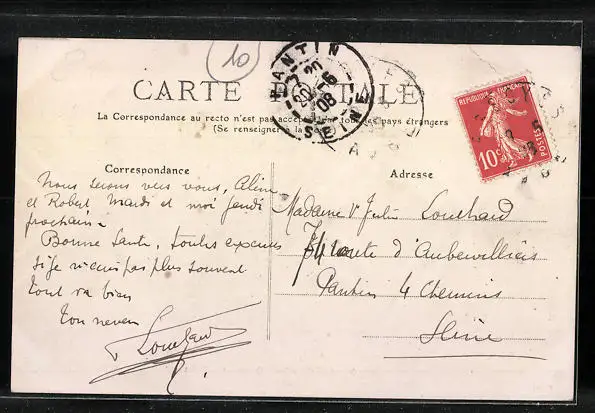 10
CARTE POSTALE
PANTIN
7 20
20 -6
08
SEINE
La Correspondance au recto n'est pas acceptée par tous les pays étrangers
(Se renseigner à la
REPUBLIQUE FRANÇAISE
10c
POSTES
Correspondance
Adresse
Nous serons vers vous, Aline
et Robert Mardi et moi Jeudi
prochain.
Bonne Santé, toutes excuses
si je n'ecris pas plus souvent
tout va bien
ton neveu
Madame Vve Julien
route d'Aubervilliers
Pantin 4 Chemins
Seine